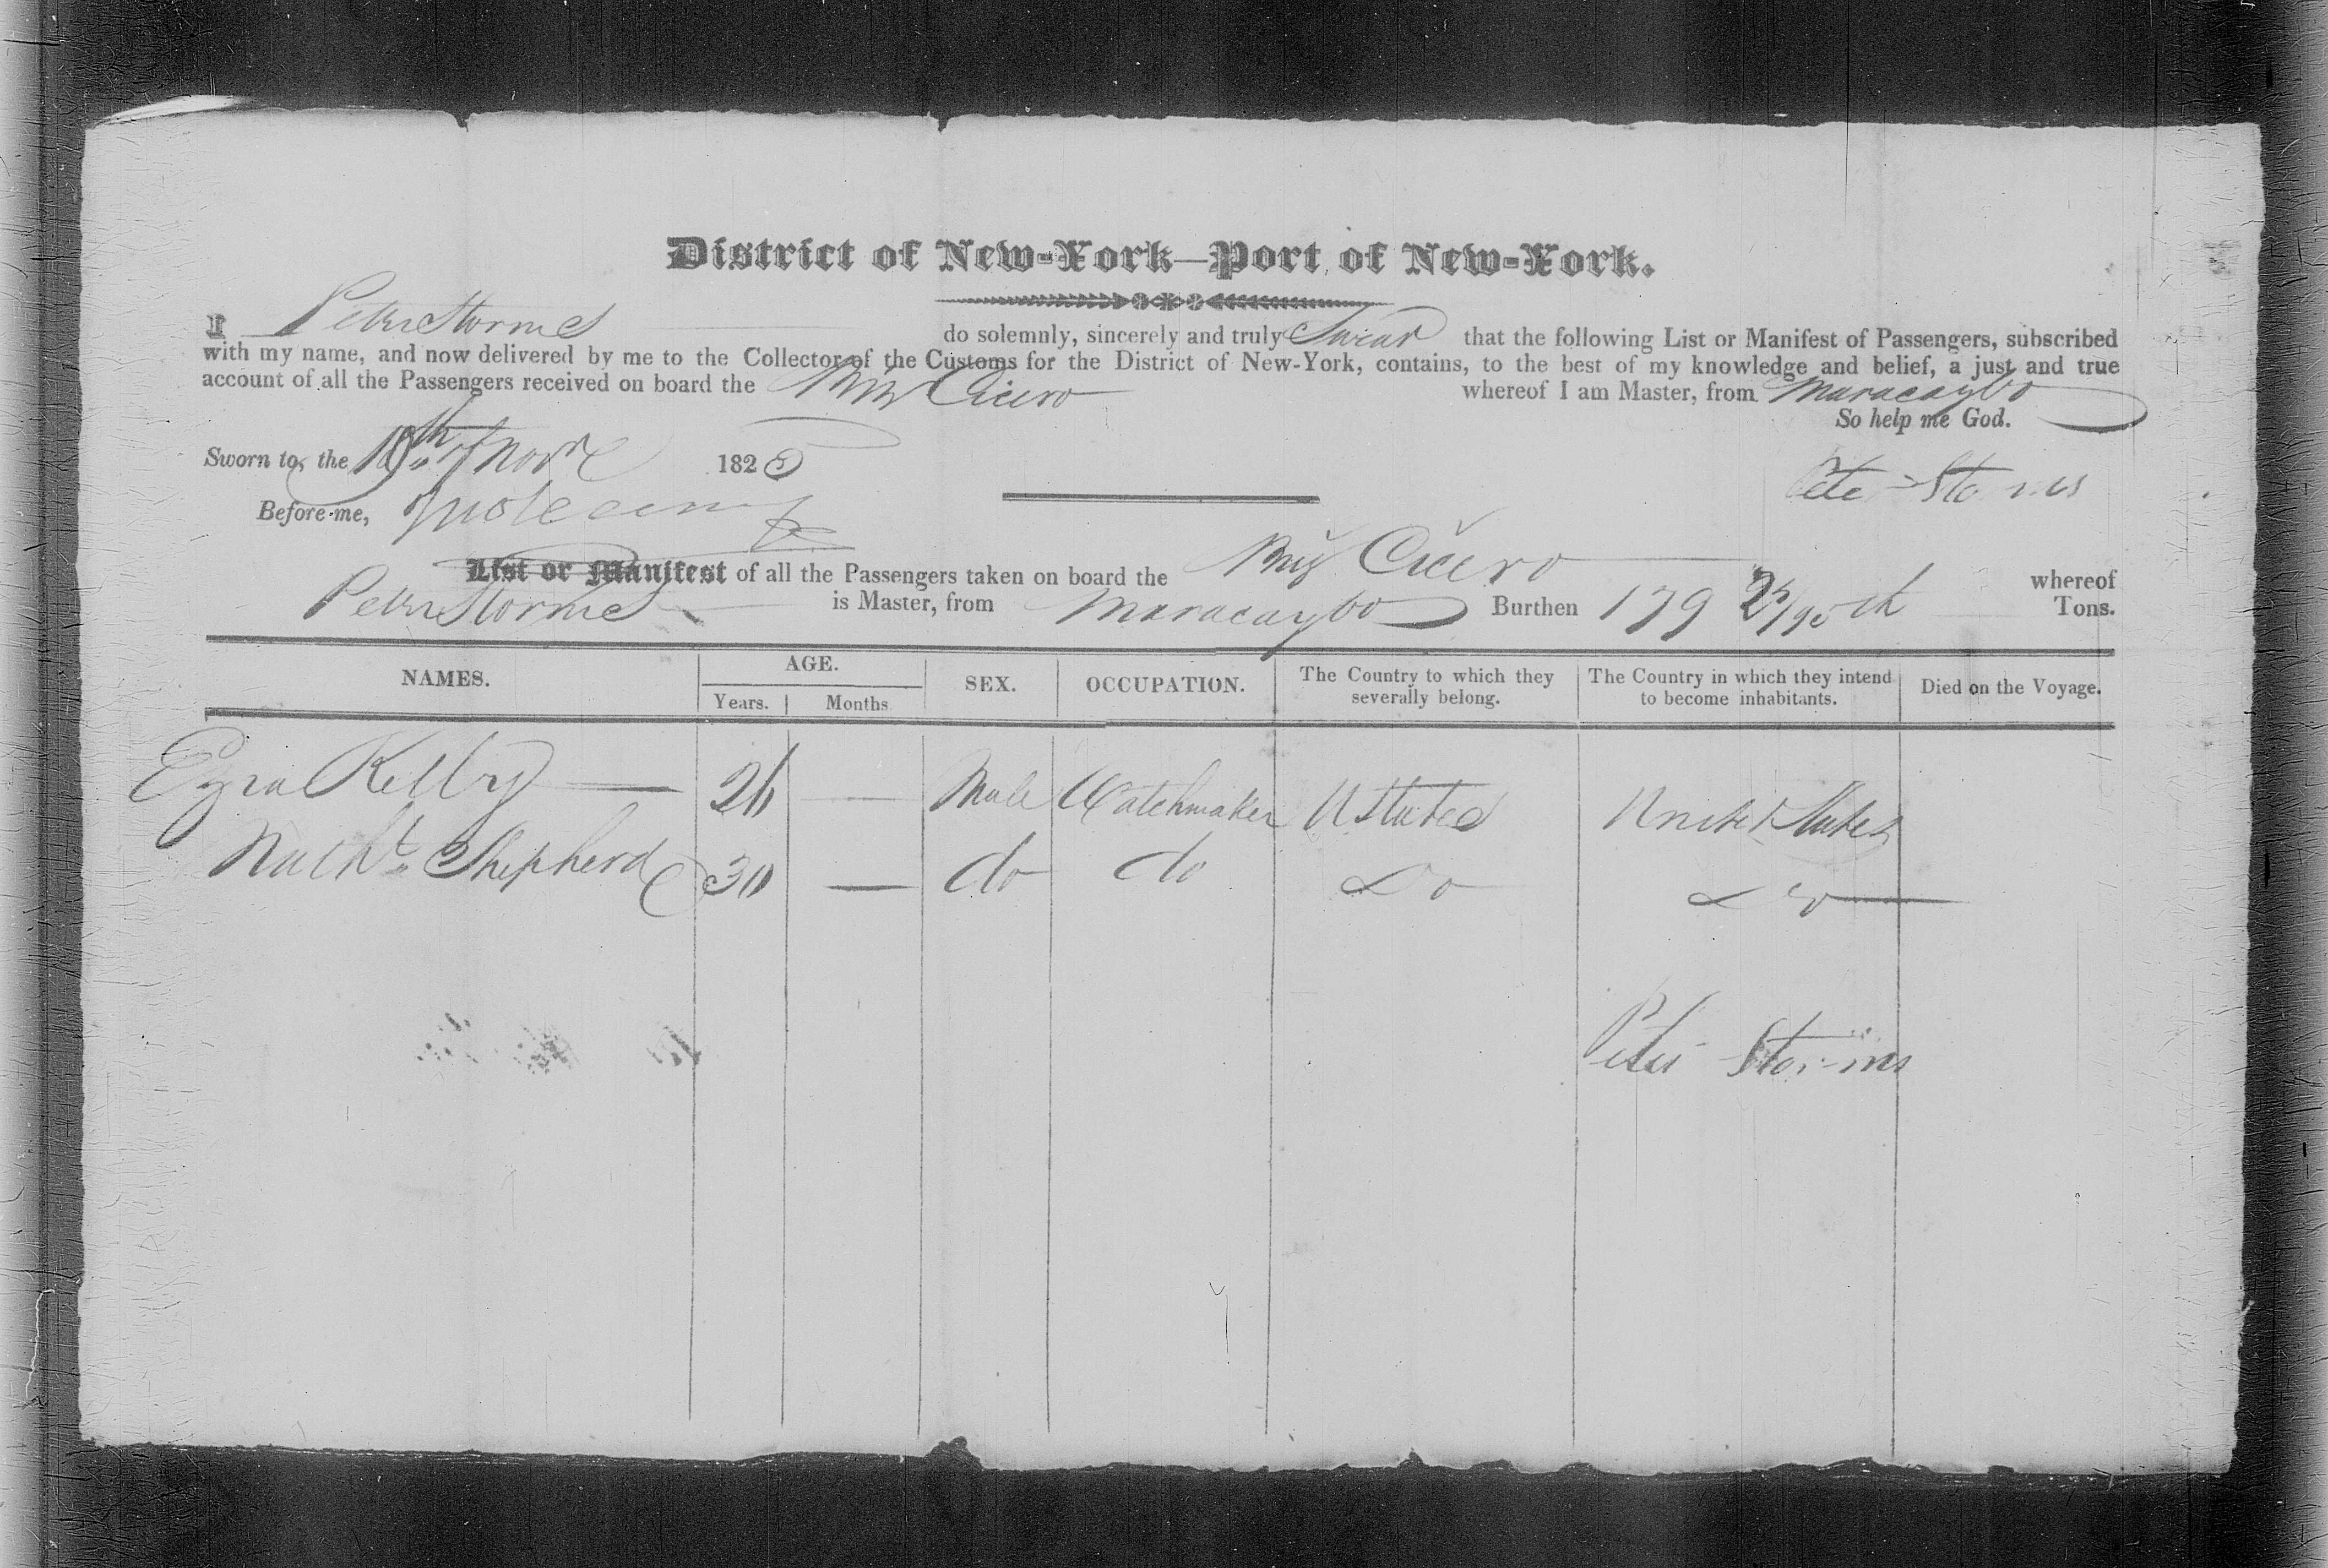 District of New-York—Port of New-York.
I Peter Storms do solemnly, sincerely and truly Swear that the following List or Manifest of Passengers, subscribed
with my name, and now delivered by me to the Collector of the Customs for the District of New-York, contains, to the best of my knowledge and belief, a just and true
account of all the Passengers received on board the Brig Cicero whereof I am Master, from Maracaybo
So help me God.
Sworn to, the of Nov 182
Before me,
Peter Storms
List or Manifest of all the Passengers taken on board the Brig Cicero whereof
Peter Storms is Master, from Maracaybo Burthen 179 /95th Tons.
NAMES. AGE. SEX. OCCUPATION. The Country to which they severally belong. The Country in which they intend to become inhabitants. Died on the Voyage.
Years. Months
Ezra Kelby — 26 — Male Watchmaker U States United States
Shepherd 30 — do do Do Do —
Peter Storms